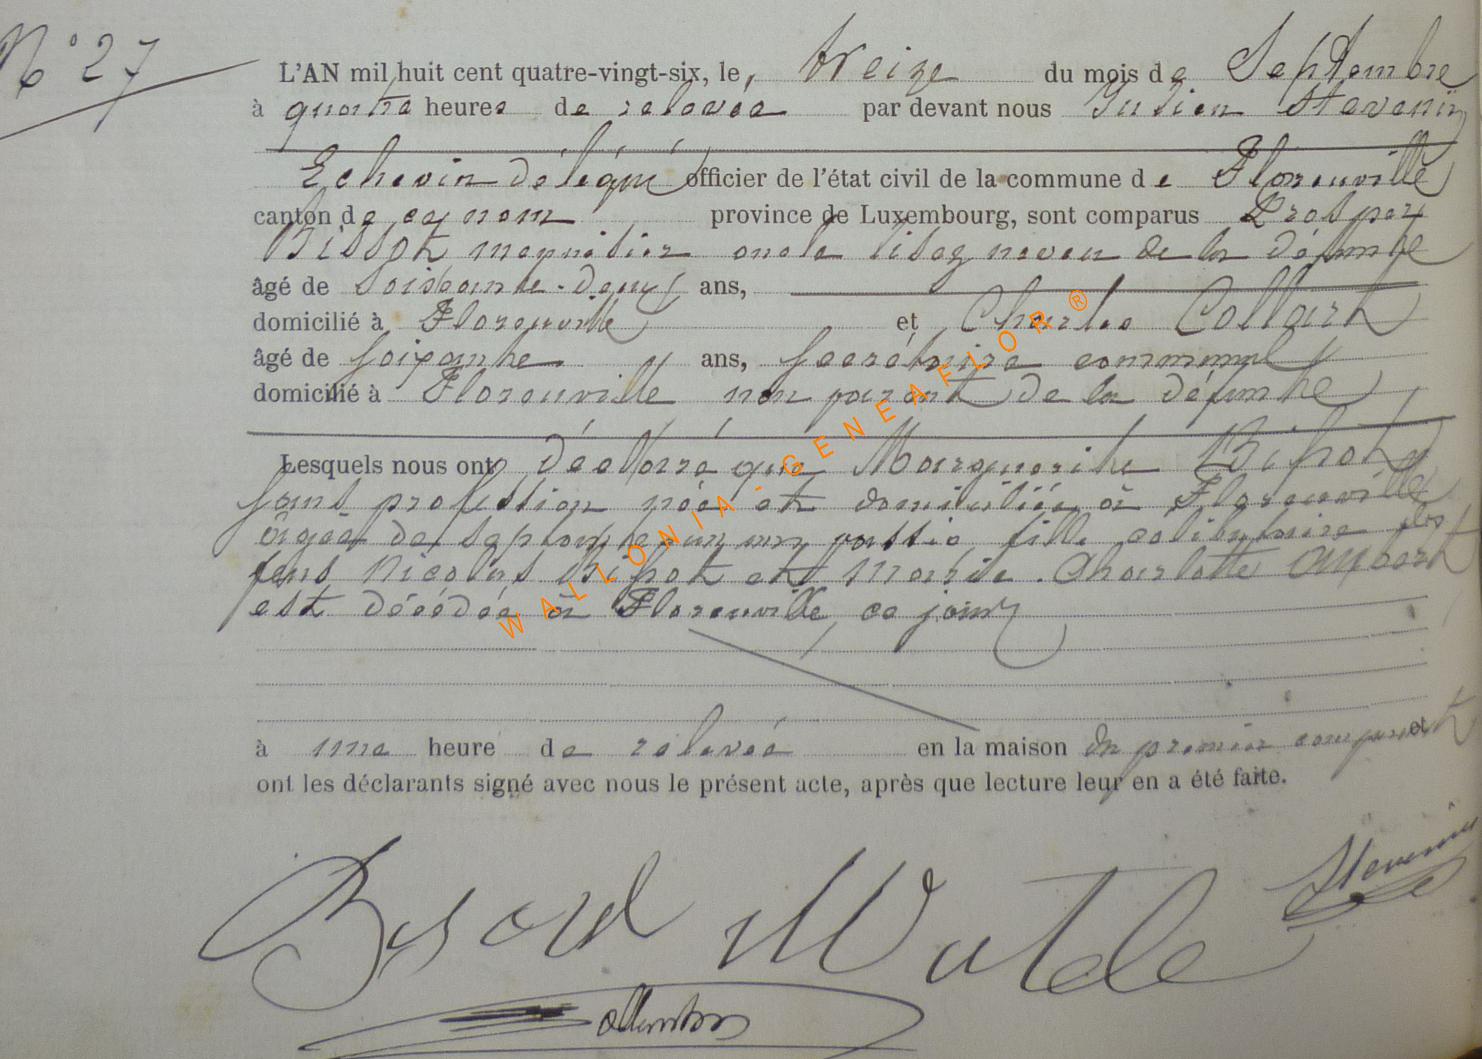 N° 27
L'AN mil huit cent quatre-vingt-six, le treize du mois de Septembre
à quatre heures de relevée par devant nous Julien Stevenin
Echevin délégué officier de l'état civil de la commune de Florenville
canton de ce nom province de Luxembourg, sont comparus Prosper
Bissot menuisier oncle neveu de la défunte
âgé de soissante-deux ans,
domicilié à Florenville et Charles Collart
âgé de soixante ans, secrétaire communal
domicilié à Florenville non parent de la défunte
Lesquels nous ont déclaré que Marguerite Bissot
sans profession née et domiciliée à Florenville
âgée de septante un an passés fille célibataire des
feus Nicolas Bissot et Marie Charlotte
est décédée à Florenville, ce jour
à une heure de relevée en la maison du premier comparant et
ont les déclarants signé avec nous le présent acte, après que lecture leur en a été faite.
Stevenin
WALLONIA - GENEAFLOR ®